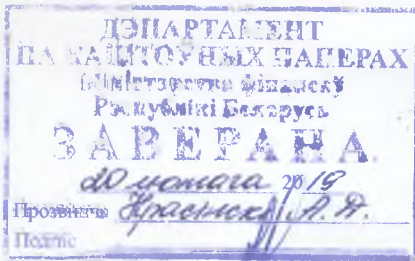 ДЭПАРТАМЕНТ
ПА КАШТОЎНЫХ ПАПЕРАХ
Міністэрства фінансаў
Рэспублікі Беларусь
ЗАВЕРАНА
20 лютага 2019
Прозвішча А. А.
Подпіс